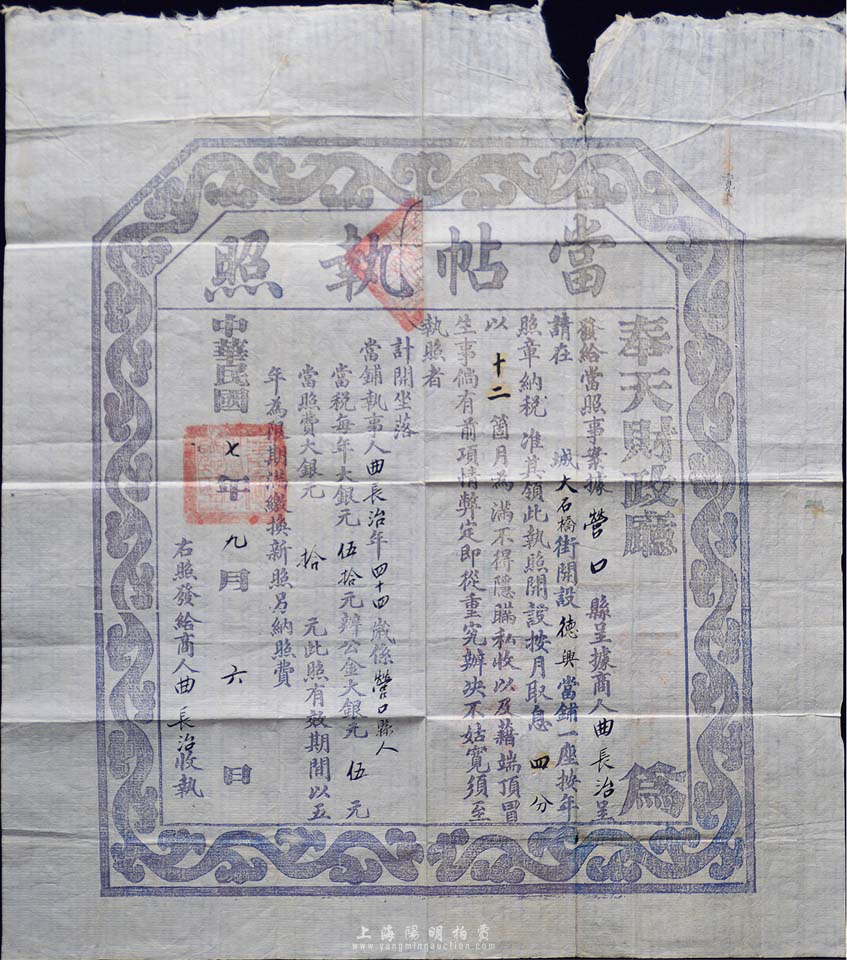 當帖執照
奉天財政廳 為
發給當照事業據營口縣呈據商人曲長治呈
請在 城大石橋街開設德興當鋪一座按年
照章納稅准其領此執照開設按月取息四分
以十二箇月為滿不得隱瞞私收以及藉端頂冒
生事倘有前項情弊定即從重究辦決不姑寬須至
執照者
計開坐落
當鋪執事人曲長治年四十四歲係營口縣人
當稅每年大銀元伍拾元辦公金大銀元伍元
當照費大銀元拾元此照有效期間以五
年為限期滿繳換新照另納照費
右照發給商人曲長治收執
中華民國七年九月六日
上海陽明拍賣
www.yangmingauction.com